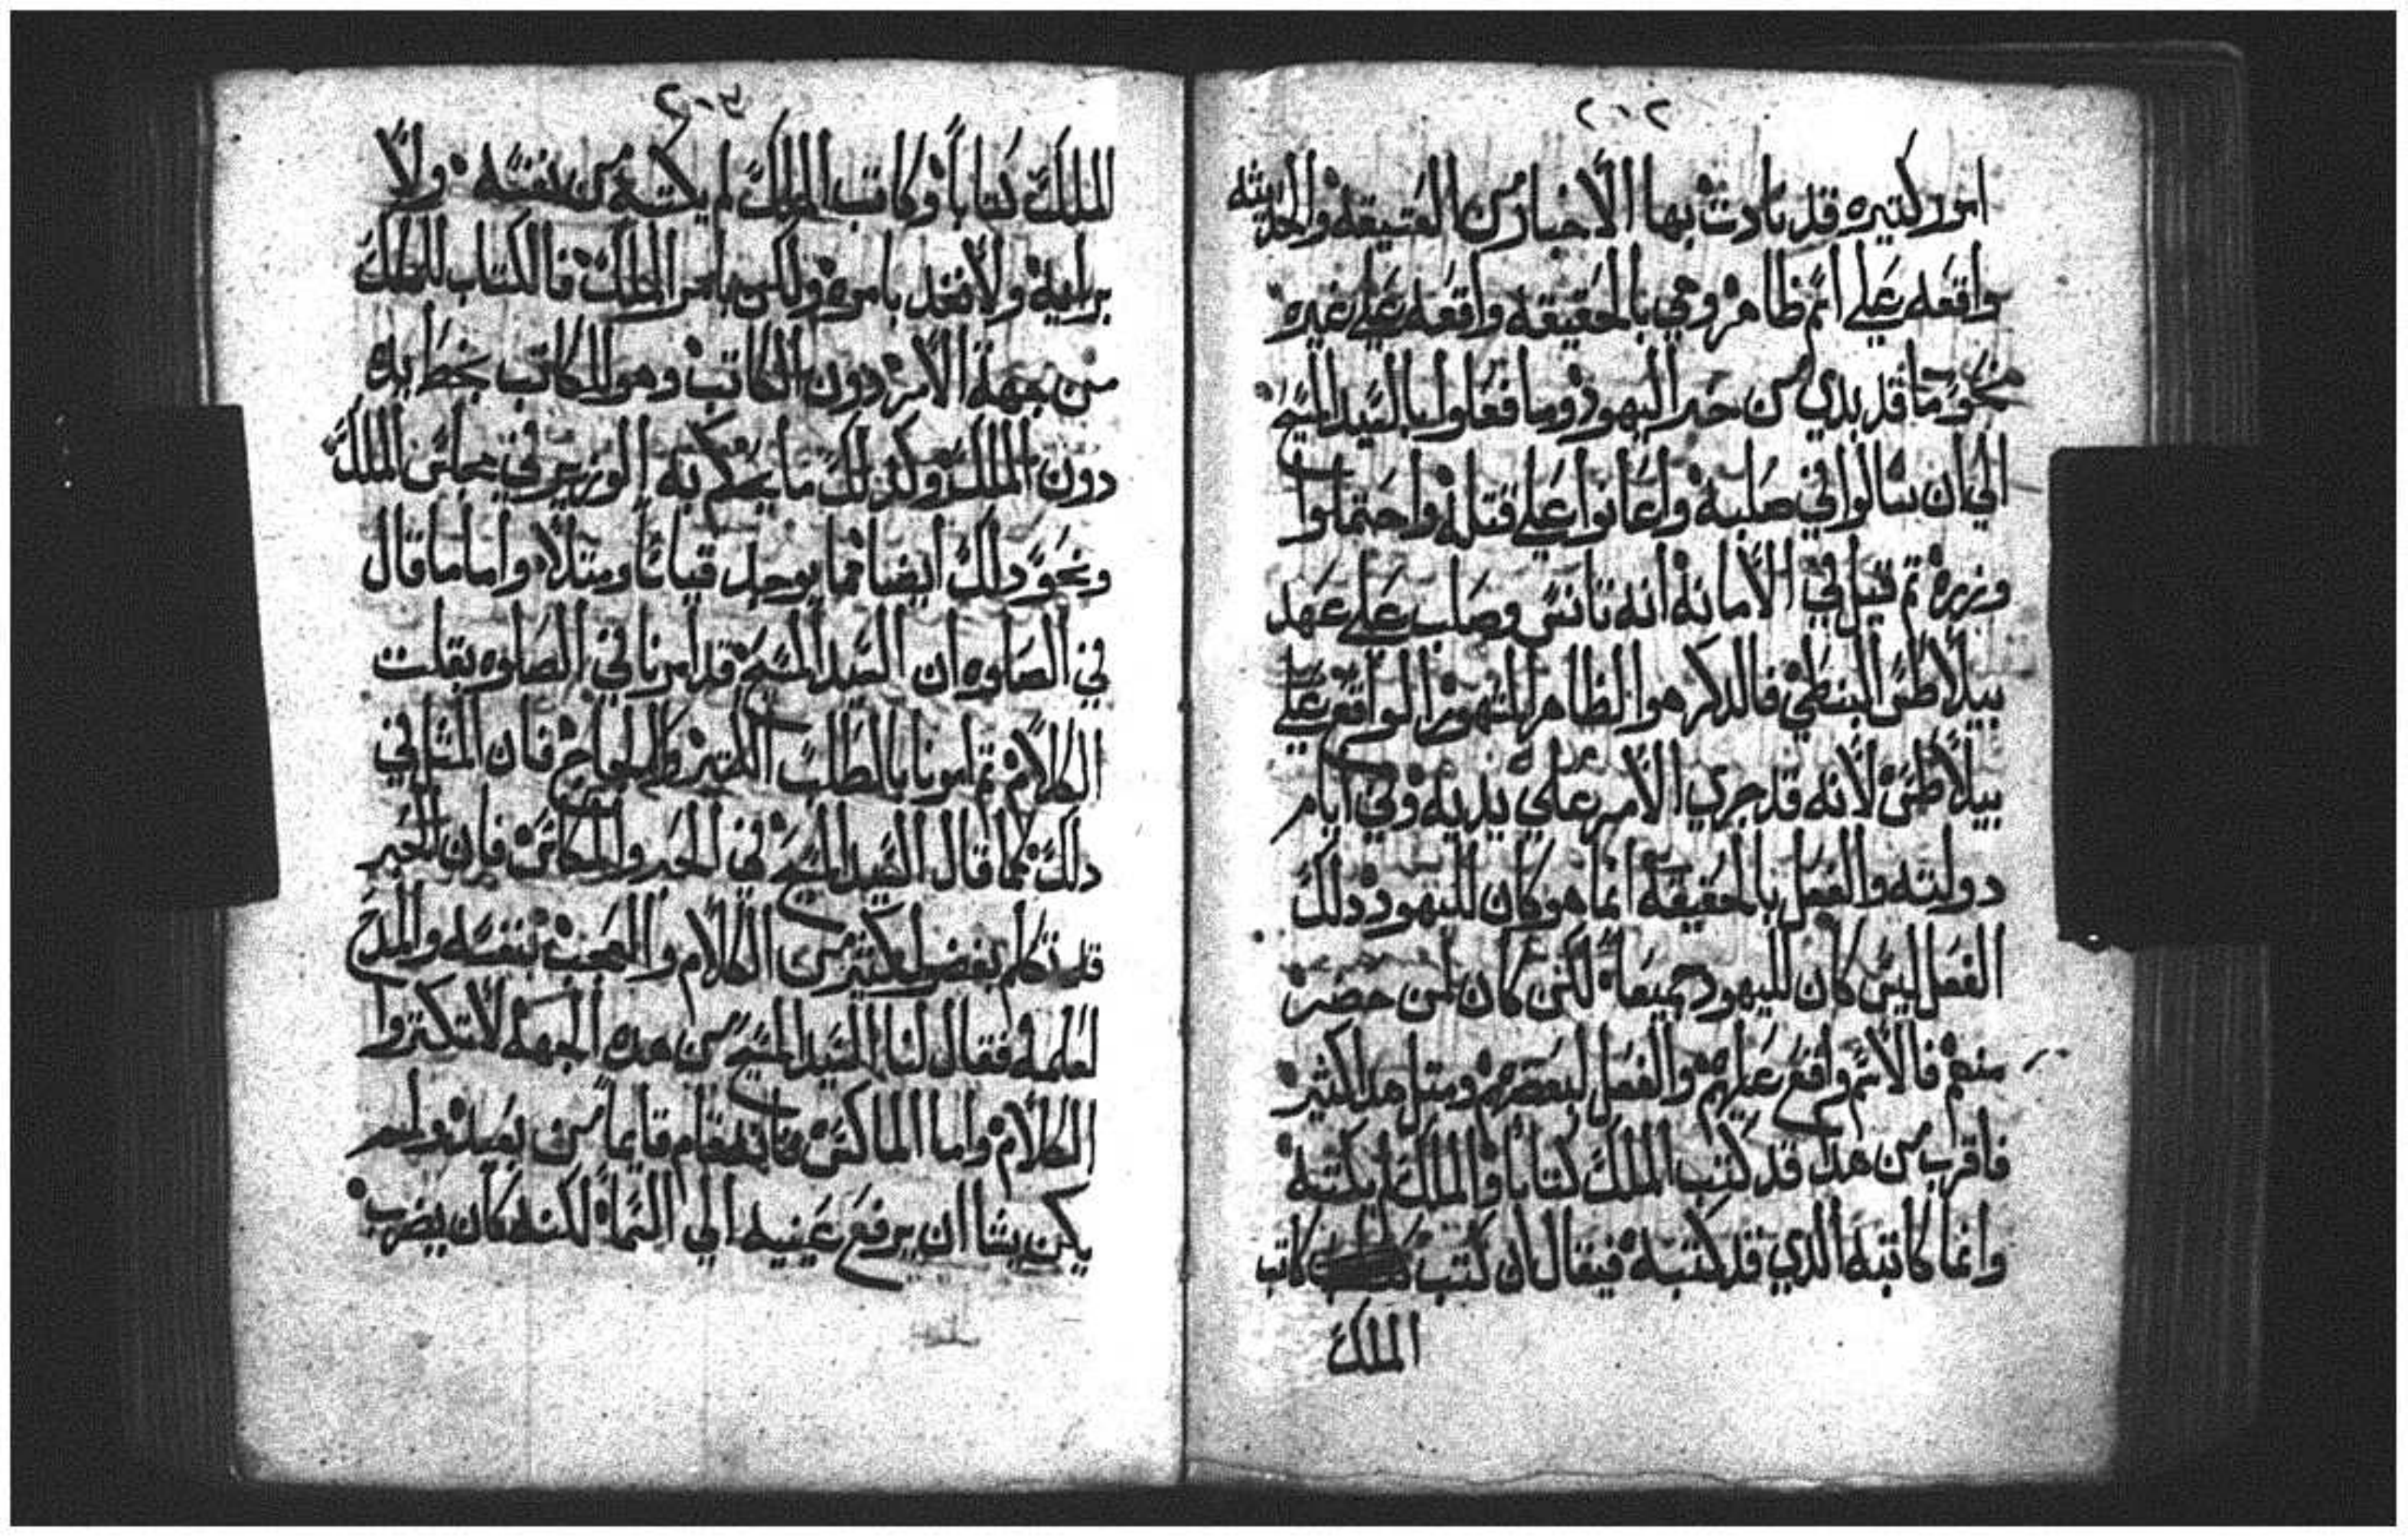 ٢٠٢
امور كتيره قد نادت بها الاخبار من العتيقه والحديثه
واقعه علي اسم ظاهر وهي بالحقيقه واقعه علي غيره
نحو ما قد بدي من حسد اليهود وما فعلوا بالسيد المسيح
الي ان سالوا في صلبه واعانوا علي قتله واحتملوا
وزره تم قيل في الامانه انه تانس وصلب علي عهد
بيلاطس البنطي فالدكر هو الظاهر الواقع علي
بيلاطس لانه قد جري الامر علي يديه وفي ايام
دولته والفعل بالحقيقه انما هو كان لليهود ودلك
الفعل ليس كان لليهود جميعا لكن كان لمن حضر
منهم فالاسم واقع عليهم والفعل لبعضهم ومتل هدا كثير
فاقرب من هدا قد كتب الملك كتابا والملك لم يكتبه
وانما كاتبه الدي قد كتبه فيقال ان كتب كاتب
الملك
٢٠٣
الملك كتابا وكاتب الملك لم يكتبه من نفسه ولا
برايه ولا نفد بامره ولكن بامر الملك فالكتاب للملك
من جهة الامر دون الكاتب وهو للكاتب بخط يده
دون الملك وكدلك ما يتكلم به الوزير في مجلس الملك
ونحو دلك ايضا مما يوجد قياسا ومتلا واما ما قال
في الصلوه ان السيد المسيح قد امرنا في الصلوه بقلت
الكلام تم امرنا بالطلب الكتير واللجاج فان المتل في
دلك كما قال السيد المسيح في الحبر والماكس فان الحبر
قد تكلم بفضول كتير من الكلام والعجب بنفسه والمدح
لعلمه فقال لنا السيد المسيح من هده الجهه لا تكتروا
الكلام واما الماكس فانه قام قايما من بعيد ولم
يكن يشا ان يرفع عينيه الي السما لكنه كان يضرب